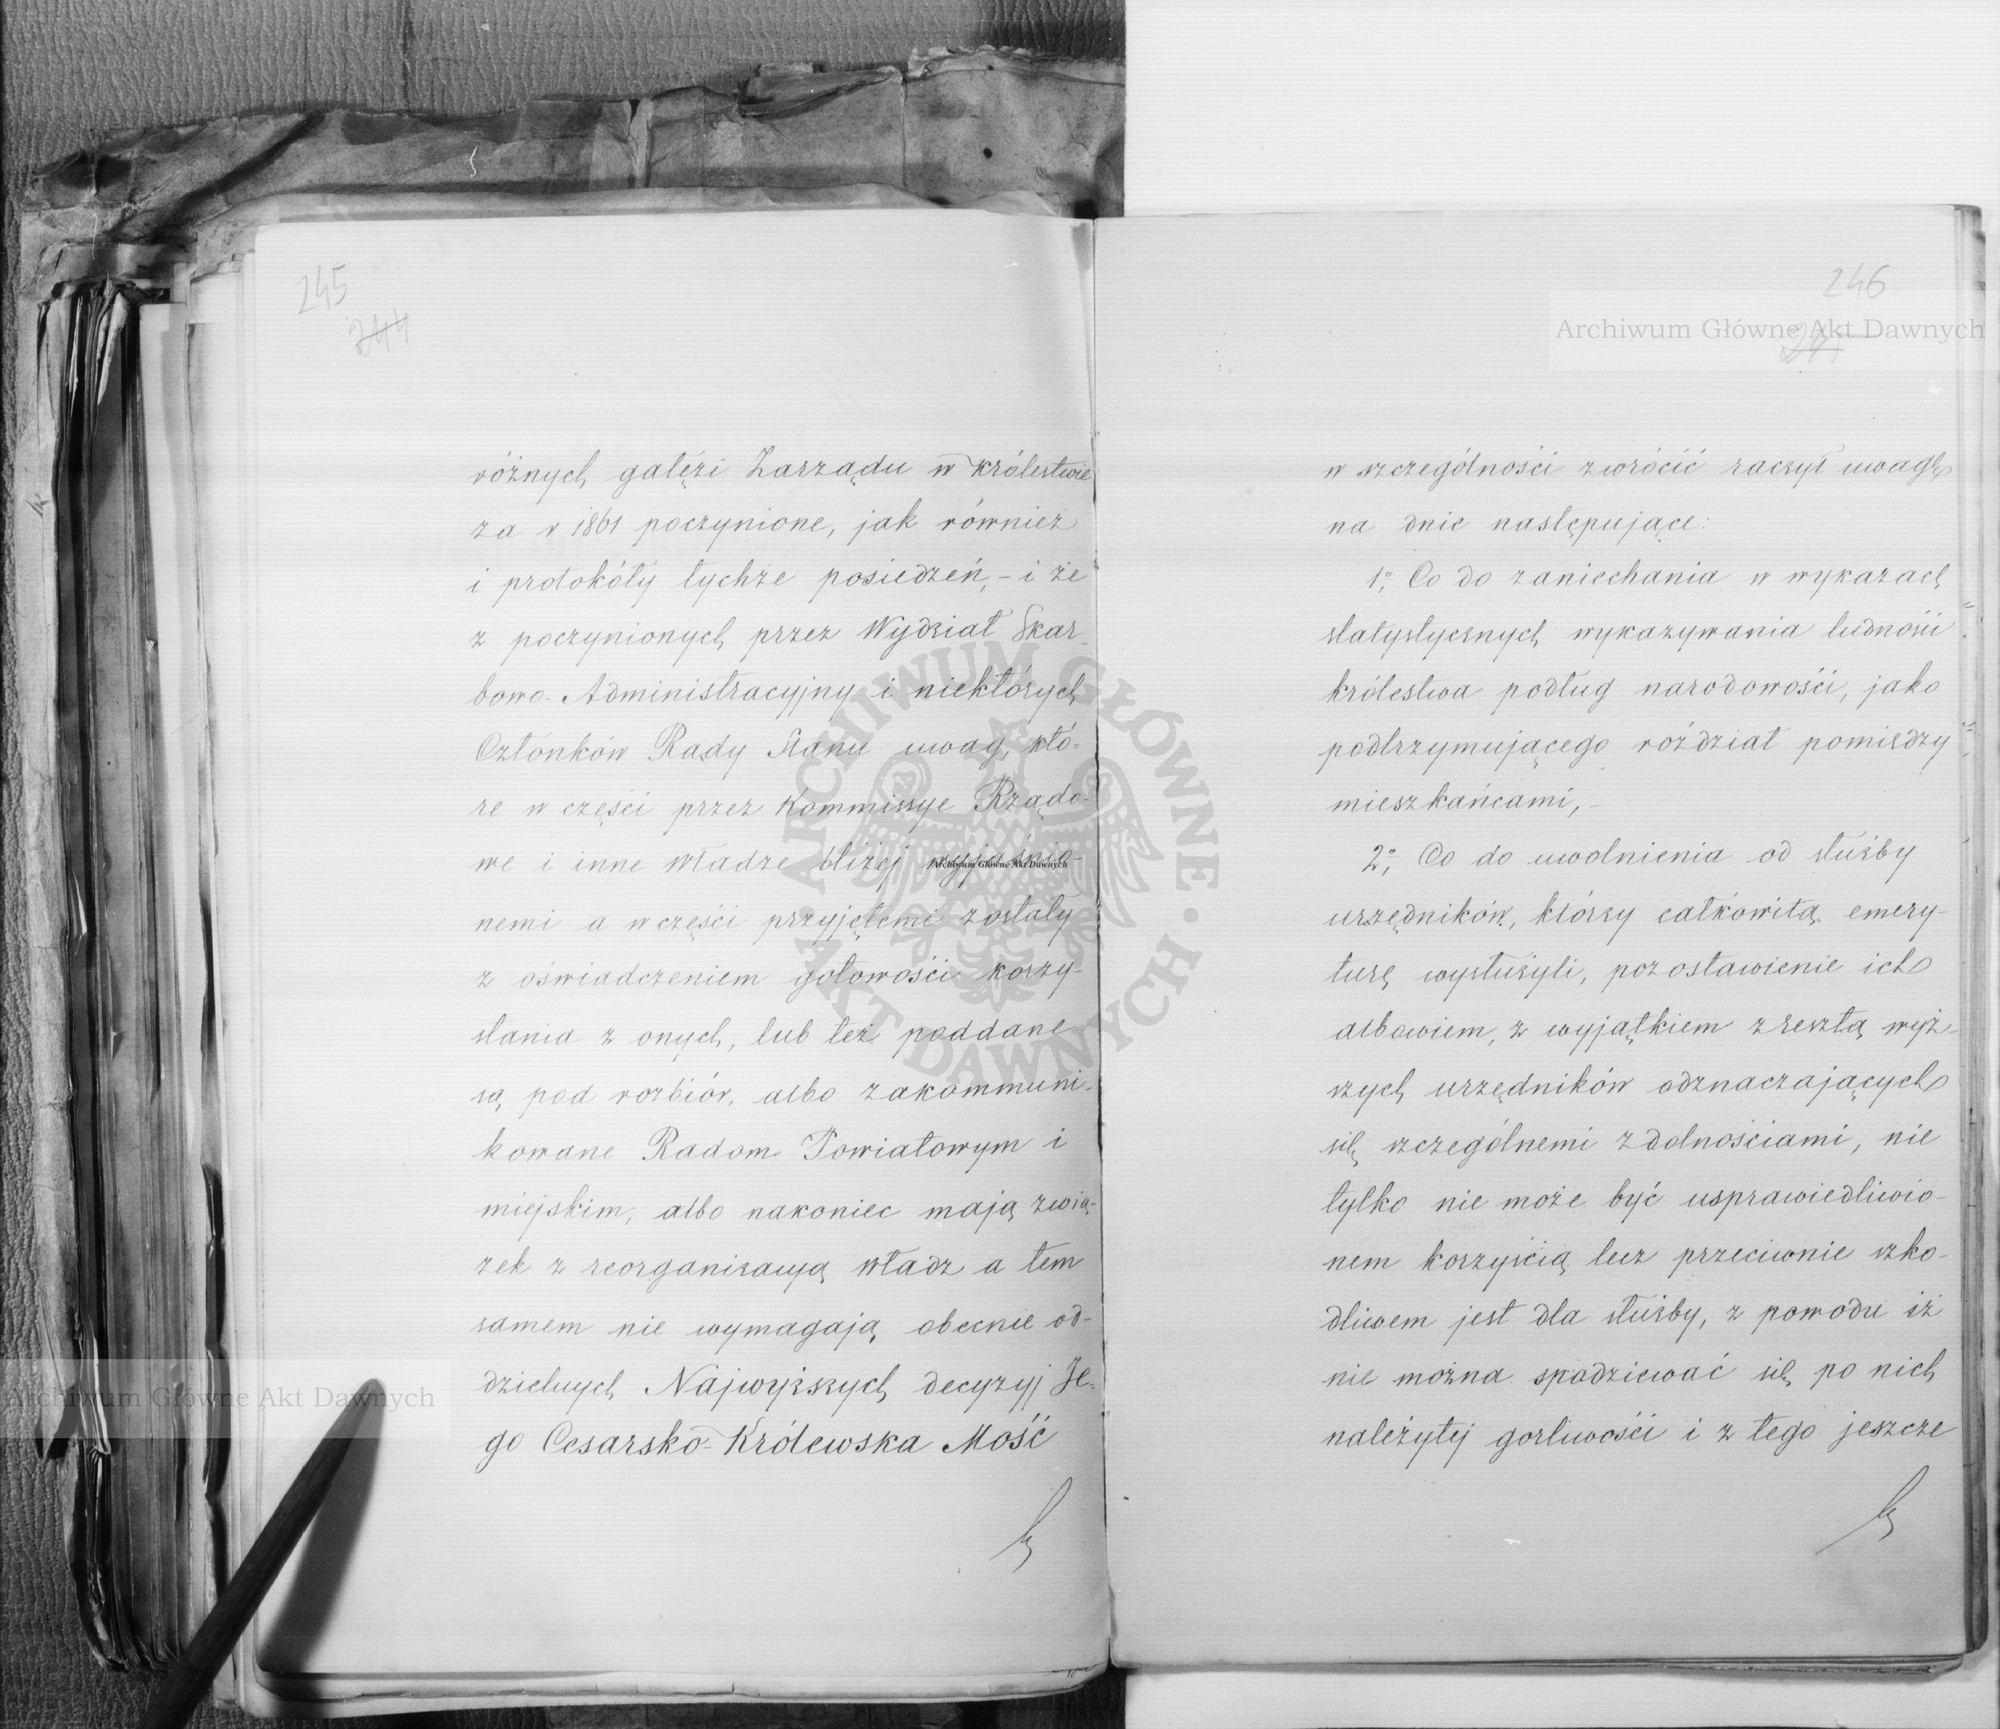 245
244
różnych gałęzi Zarządu w Królestwie
za r 1861 poczynione, jak również
i protokóły tychże posiedzeń, – i że
z poczynionych przez Wydział Skar-
bowo-Administracyjny i niektórych
Członków Rady Stanu uwag, któ-
re w części przez Kommissye Rządo-
we i inne władze bliżej wyjaśnio-
nemi a w części przyjętemi zostały
z oświadczeniem gotowości korzy-
stania z onych, lub też poddane
są pod rozbiór, albo zakommuni-
kowane Radom Powiatowym i
miejskim, albo nakoniec mają zwią-
zek z reorganisacyą władz a tem
samem nie wymagają obecnie od-
dzielnych Najwyższych decyzyj Je-
go Cesarsko-Królewska Mość
246
Archiwum Główne Akt Dawnych
w szczególności zwrócić raczył uwagę
na dnie następujące:
1o, Co do zaniechania w wykazach
statystycznych wykazywania ludności
królestwa podług narodowości, jako
podtrzymującego róździał pomiędzy
mieszkańcami, –
2o, Co do uwolnienia od służby
urzędników, którzy całkowitą emery-
turę wysłużyli, pozostawienie ich
albowiem, z wyjątkiem zresztą wyż-
szych urzędników odznaczających
się szczególnemi zdolnościami, nie
tylko nie może być usprawiedliwio-
nem korzyścią lecz przeciwnie szko-
dliwem jest dla służby, z powodu iż
nie można spodziewać się po nich
należytej gorliwości i z tego jeszcze
ARCHIWUM GŁÓWNE AKT DAWNYCH
Archiwum Główne Akt Dawnych
Archiwum Główne Akt Dawnych